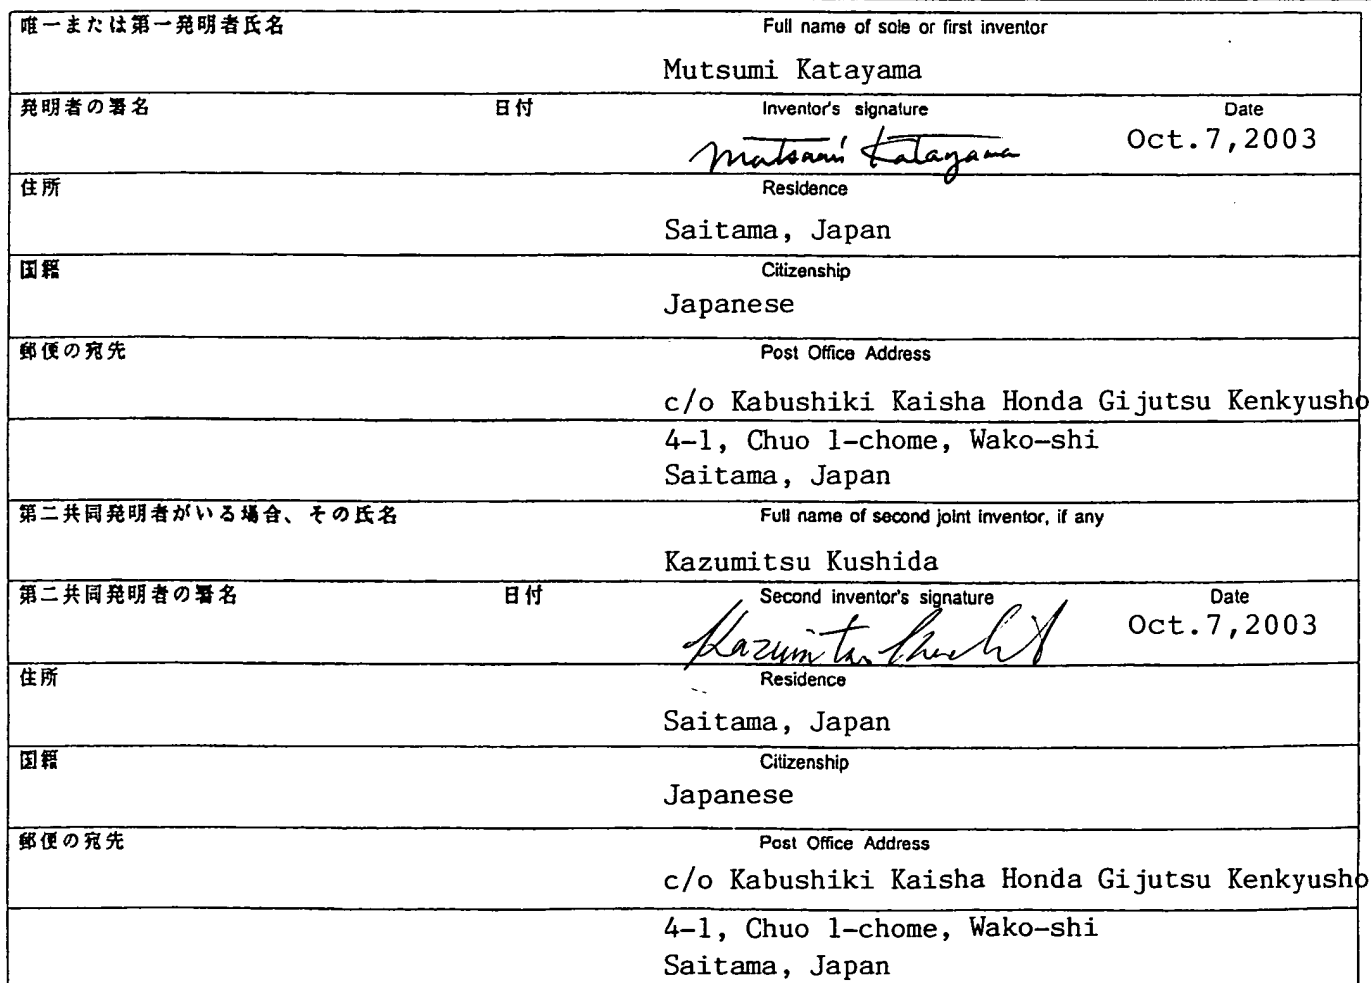 唯一または第一発明者氏名 Full name of sole or first inventor
Mutsumi Katayama
発明者の署名 日付 Inventor's signature Date
Mutsumi Katayama Oct.7,2003
住所 Residence
Saitama, Japan
国籍 Citizenship
Japanese
郵便の宛先 Post Office Address
c/o Kabushiki Kaisha Honda Gijutsu Kenkyusho
4-1, Chuo 1-chome, Wako-shi
Saitama, Japan
第二共同発明者がいる場合、その氏名 Full name of second joint inventor, if any
Kazumitsu Kushida
第二共同発明者の署名 日付 Second inventor's signature Date
Kazumitsu Kushida Oct.7,2003
住所 Residence
Saitama, Japan
国籍 Citizenship
Japanese
郵便の宛先 Post Office Address
c/o Kabushiki Kaisha Honda Gijutsu Kenkyusho
4-1, Chuo 1-chome, Wako-shi
Saitama, Japan